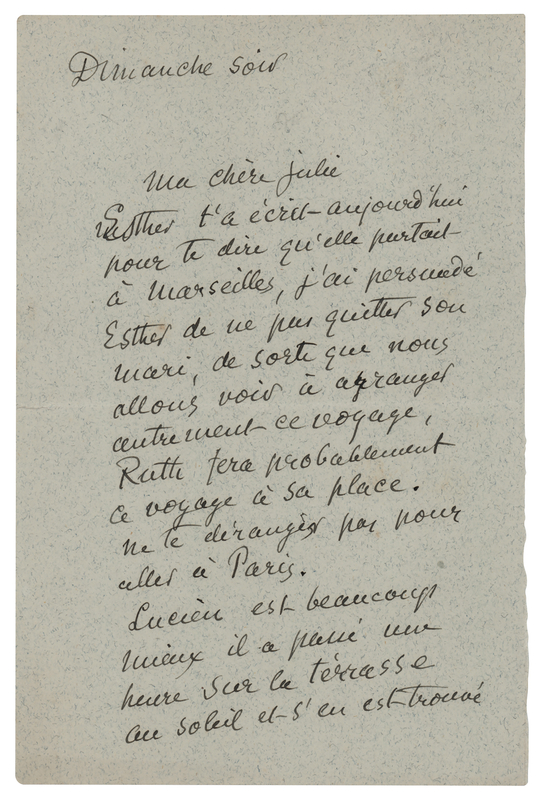 Dimanche soir
Ma chère julie
Esther t'a écrit aujourd'hui
pour te dire qu'elle partait
à Marseilles, j'ai persuadé
Esther de ne pas quitter son
mari, de sorte que nous
allons voir à arranger
autrement ce voyage,
Ruth fera probablement
ce voyage à sa place.
ne te déranges pas pour
aller à Paris.
Lucien est beaucoup
mieux il a passé une
heure sur la térrasse
au soleil et s'en est trouvé